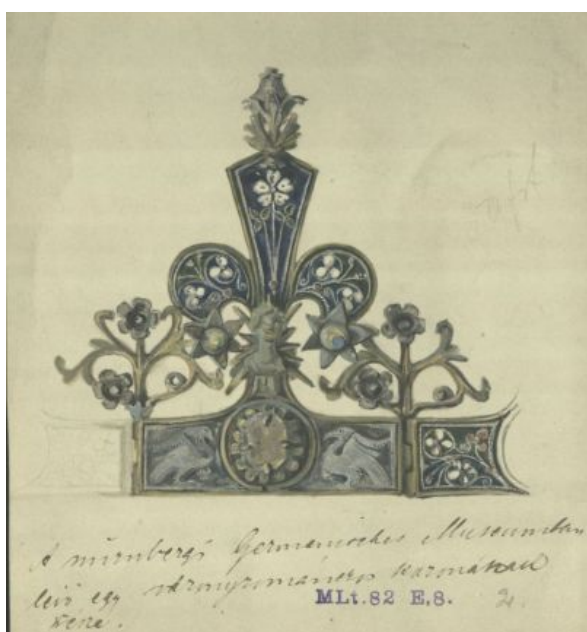 A nürnbergi Germanisches Museumban
levő egy aranyzománcos koronának
része.
MLt.82 E.8.